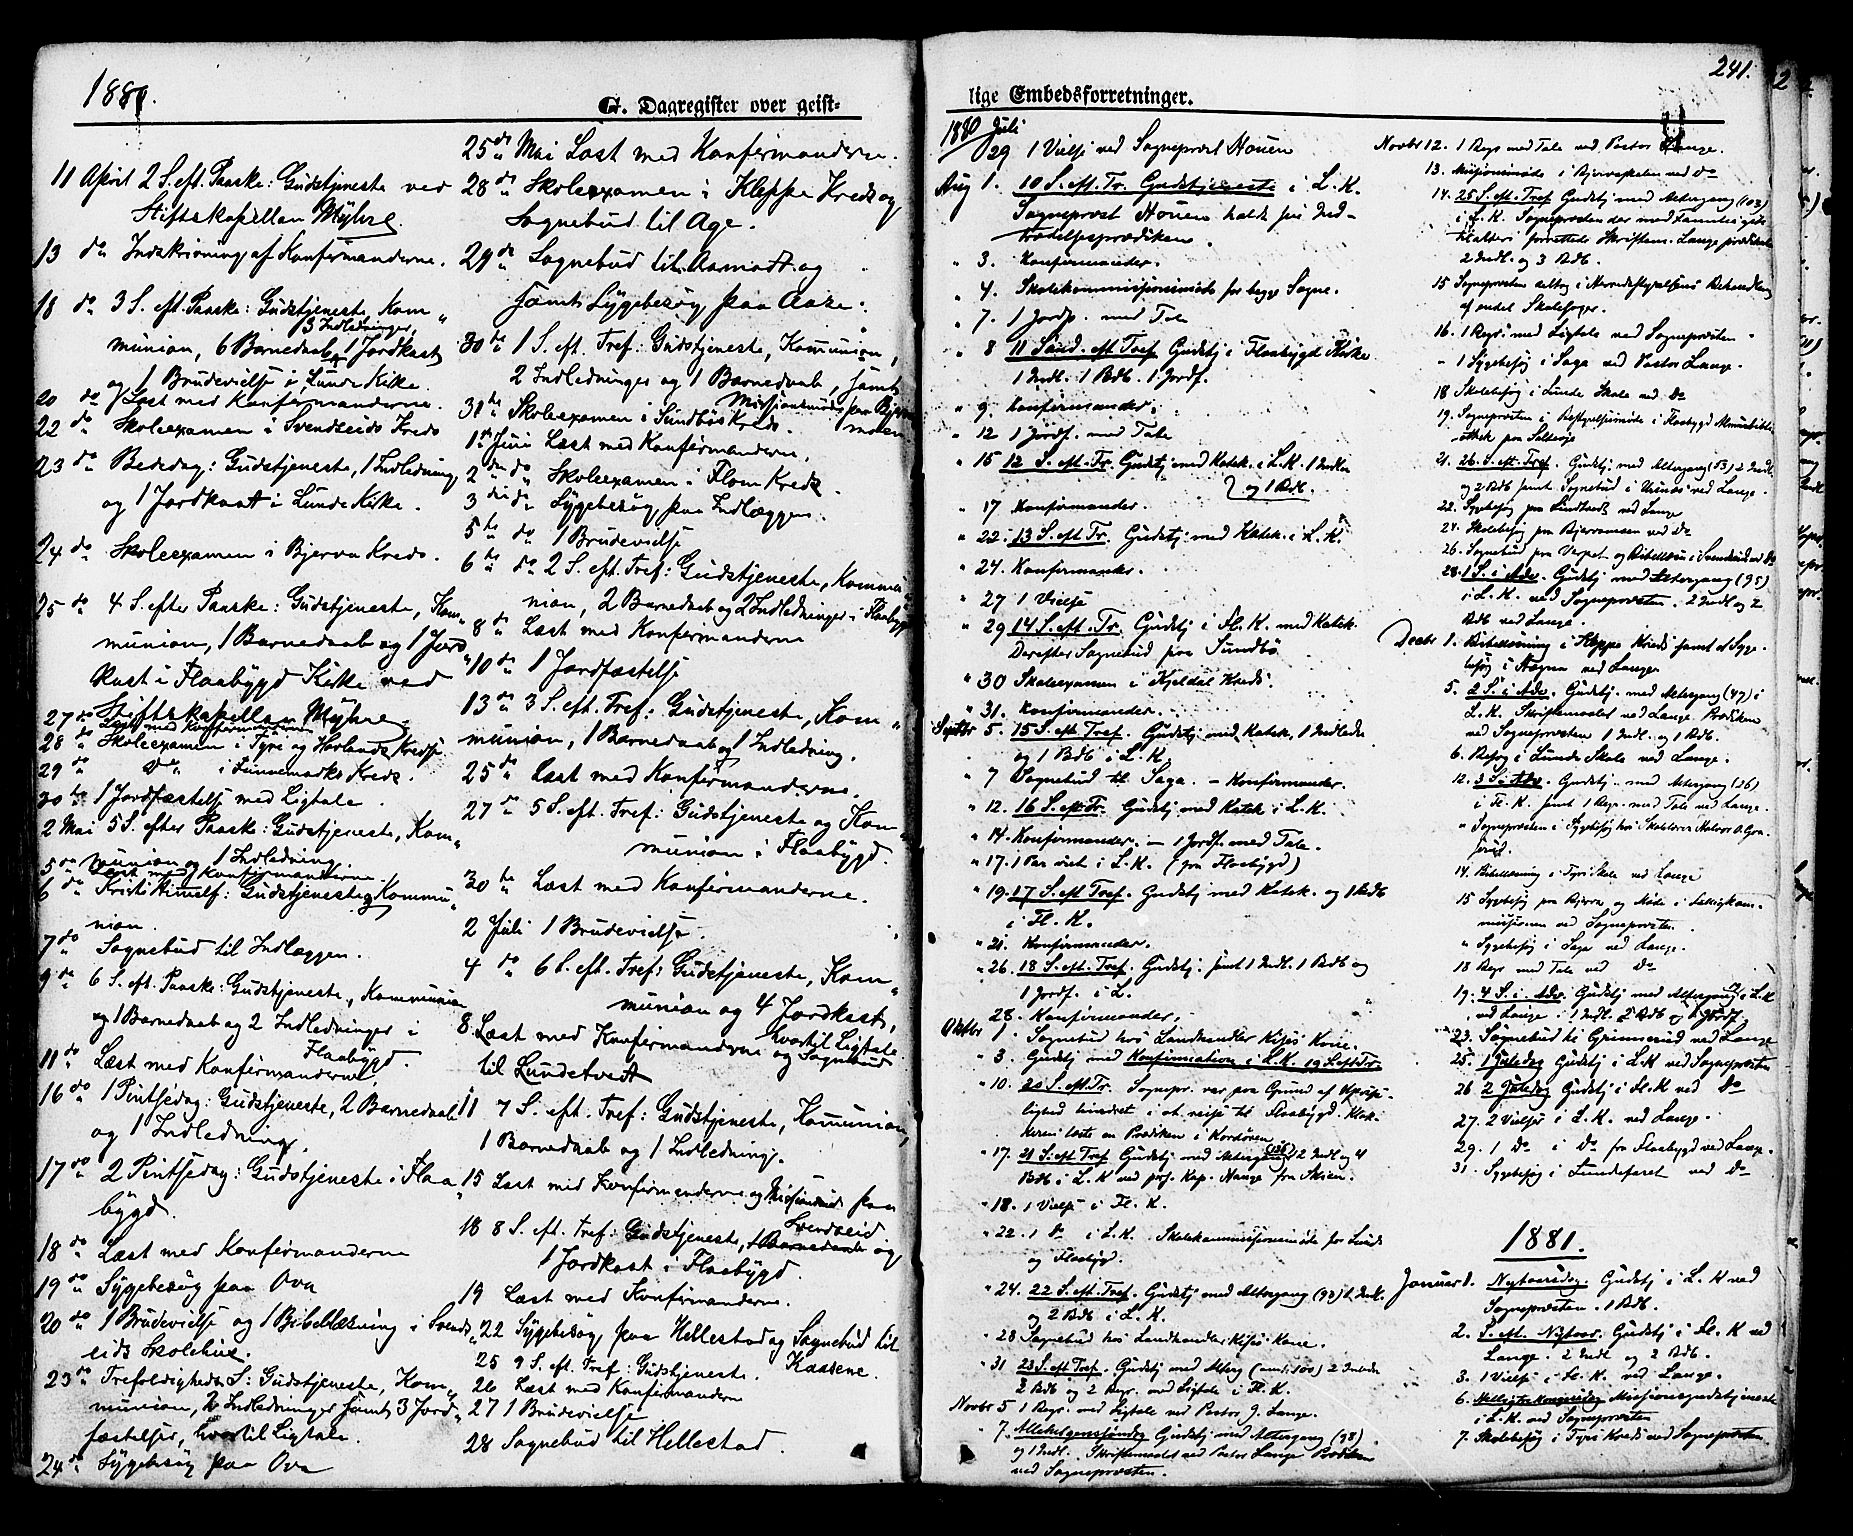 1880.
G. Dagregister over geist-
11 April 2 S. eft. Paaske: Gudstjeneste ved
Stiftskapellan Myhre.
13 do Indskrivning af Konfirmanderne.
18 do 3 S. eft. Paaske: Gudstjeneste, Kom„
3 Indledninger,
munion, 6 Barnedaab, 1 Jordkast
og 1 Brudevielse i Lunde Kirke.
20 do Læst med Konfirmanderne.
22 do Skoleexamen i Svendseids Kreds
23 do Bededag: Gudstjeneste, 1 Indledning,
og 1 Jordkast i Lunde Kirke.
24 do Skoleexamen i Bjerva Kreds.
25 do 4 S. efter Paaske: Gudstjeneste, Kom„
munion, 1 Barnedaab og 1 Jord„
kast i Flaabygd Kirke ved
Stiftskapellan Myhre.
27 do Læst med Konfirmanderne
28 do Skoleexamen i Tyri og Horlands Kredse
29 do Do i Lunnemarks Kreds.
30 te 1 Jordfæstelse med Ligtale.
2 Mai 5 S. efter Paaske: Gudstjeneste, Kom„
munion og 1 Indledning.
5 do Læst med Konfirmanderne.
6 do Kristi Himmelf: Gudstjeneste, Kommu„
nion.
7 do Sognebud til Indlæggen.
9 do 6 S. eft. Paaske: Gudstjeneste, Kommunion
og 1 Barnedaab og 2 Indledninger i
Flaabygd.
11 do Læst med Konfirmanderne.
16 do 1 Pintsedag: Gudstjeneste, 2 Barnedaab
og 1 Indledning.
17 do 2 Pintsedag: Gudstjeneste i Flaa„
bygd.
18 do Læst med Konfirmanderne
19 do Sygebesøg paa Ova
20 do 1 Brudevielse og 1 Bibellæsning i Svend„
eids Skolehus.
23 do Trefoldigheds S: Gudstjeneste, Kom„
munion, 2 Indledninger samt 3 Jord„
fæstelser, hvortil Ligtale.
24 do Sygebesøg paa Ova
25 do Mai Læst med Konfirmanderne.
28 do Skoleexamen i Kleppe Kreds og
Sognebud til Age.
29 do Sognebud til Aamodt og
samt Sygebesøg paa Aase.
30 te 1 S. eft. Tref: Gudstjeneste, Kommunion,
2 Indledninger og 1 Barnedaab, samt
Missionsmøde paa Bjerva
moen
31 te Skoleexamen i Sundbøs Kreds.
1ste Juni Læst med Konfirmanderne.
2 den do Skoleexamen i Flom Kreds.
3 die do Sygebesøg paa Indlæggen.
5 te do 1 Brudevielse
6 te do 2 S. eft. Tref: Gudstjeneste, Kommu„
nion, 2 Barnedaab og 2 Indledninger i Flaabygd
8 do Læst med Konfirmanderne
10 do 1 Jordfæstelse
13 do 3 S. eft. Tref: Gudstjeneste, Kom„
munion, 1 Barnedaab og 1 Indledning.
25 do Læst med Konfirmanderne.
27 do 5 S. eft. Tref: Gudstjeneste og Kom„
munion i Flaabygd.
30 te Læst med Konfirmanderne.
2 Juli 1 Brudevielse.
4 do 6 S. eft. Tref: Gudstjeneste, Kom„
munion og 4 Jordkast,
hvortil Ligtale.
8. Læst med Konfirmanderne og Sognebud
til Lundetvedt
11 7 S. eft. Tref: Gudstjeneste, Kommunion,
1 Barnedaab og 1 Indledning.
15 Læst med Konfirmanderne og Missionsmøde paa
Svendseid
18 8 S. eft. Tref: Gudstjeneste, 1 Barnedaab og
1 Jordkast i Flaabygd.
19 Læst med Konfirmanderne.
22 Sygebesøg paa Hellestad og Sognebud til
Kaasene.
25 9 S. eft. Tref: Gudstjeneste.
26 Læst med Konfirmandern
27 1 Brudevielse
28 Sognebud til Hellestad.
241.
lige Embedsforretninger.
1880 Juli
29 1 Vielse ved Sogneprest Houen
Aug 1. 10 S. eft. Tr. Gudstjeneste i L. K.
Sogneprest Houen holdt sin Ind-
trædelsesprædiken.
" 3. Konfirmander.
" 4. Skolekommissionsmøde for begge Sogne.
" 7. 1 Jordf. med Tale
" 8 11 Sønd. eft Tref Gudstj i Flaabygd Kirke
1 Indl. 1 Bdb. 1 Jordf.
" 9. Konfirmander.
" 12 1 Jordf. med Tale
" 15 12 S. eft. Tr. Gudstj med Katek. i L. K. 1 Indl
og 1 Bdb.
" 17 Konfirmander.
" 22. 13 S. eft Tr. Gudstj. med Katek. i L. K.
" 24. Konfirmander.
" 27 1 Vielse
" 29 14 S. eft. Tr. Gudstj i Fl. K. med Katek.
Derefter Sognebud paa Sundbø
" 30 Skoleexamen i Kjeldal Kreds.
" 31. Konfirmander.
Septbr 5. 15 S. eft Tref. Gudstj med Katek, 1 Indledn
og 1 Bdb i L. K
" 7 Sognebud til Saga. – Konfirmander.
" 12. 16 S. eft Tr. Gudstj med Katek i L. K.
" 14. Konfirmander. – 1 Jordf. med Tale.
" 17. 1 Par viet i L. K. (fra Flaabygd)
" 19. 17 S. eft Tref. Gudstj med Katek. og 1 Bdb
i Fl. K.
" 21. Konfirmander.
" 26. 18 S. eft. Tref. Gudstj. samt 1 Indl. 1 Bdb og
1 Jordf. i L.
28. Konfirmander.
Oktbr 1. Sognebud hos Landhandler Kises Kone.
" 3. Gudstj med Konfirmation i L. K. 19 S. eft Tr.
" 10. 20 S. eft. Tr. Sognepr. var paa Grund af Upasse-
lighed hindret i at reise til Flaabygd. Klok-
keren læste en Prædiken i Kordøren
" 17. 21 S. eft Tref Gudstj med Altergang 12 Indl og 4
Bdb i L. K ved pers. Kap. Hauge fra Skien.
" 18. 1 Vielse i Fl. K.
" 22. 1 do i L. K. Skolekommissionsmøde for Lunde
og Flaabygd.
" 24. 22 S. eft. Tref. Gudstj med Altergang (92) 1 Indl.
og 2 Bdb i L. K.
" 28 Sognebud hos Landhandler Kises Kone.
" 31 23 S. eft Tref. Gudstj med Alterg (omtr. 100) 2 Indledn
2 Bdb og 2 Begr. med Ligtale i Fl. K.
Novbr 5 1 Begr. med Ligtale ved Pastor J. Lange.
" 7. Allehelgenssøndag Gudstj med Altergang (98)
og 1 Indl. Skriftemaalet ved Pastor Lange Prædiken
ved Sognepresten.
Novbr 12. 1 Begr med Tale ved Pastor Lange.
13. Missionsmøde i Bjervaskolen ved do
14. 25 S. eft. Tref Gudstj med Altergang (103)
i L. K. Sognepresten der med Familie gik
til Alters forrettede Skriftem. Lange prædikede
2 Indl. og 3 Bdb.
15 Sognepresten deltog i Herredsstyrelsens Behandling
af endel Skolesager.
16. 1 Begr. med Ligtale ved Sognepresten
" 1 Sygebesøg i Saga ved Pastor Lange.
18 Skolebesøg i Lunde Skole ved do
19. Sognepresten i Bestyrelsesmøde i Flaabygd
21. 26. S. eft. Tref. Gudstj med Altergang (53) 2 Indl.
og 2 Bdb samt Sognebud i ved Lange.
22. Sygebesøg paa ved Lange
24. Skolebesøg paa Bjervamoen ved do
26. Sognebud paa Verpet og Bibellæsn i Svendseid ved do
28. 1 S. i Adv. Gudstj med Altergang (95)
i L. K. ved Sognepresten. 2 Indl og 2
Bdb ved Lange.
Decbr 1. Bibellæsning i Kleppe Kreds samt et Syge-
besøg i Høgna ved Lange.
5. 2 S. i Adv. Gudstj. med Altergang (47) i
L. K. Skriftemaalet ved Lange Prædiken
ved Sognepresten 1 Indl. og 1 Bdb.
6. Besøg i Lunde Skole ved Lange.
12. 3 S. i Adv. Gudstj. med Altergang (26)
i Fl. K. samt 1 Begr. med Tale ved Lange.
" Sognepresten i Sygebesøg hos Skolelærer Halvor O. Gra-
14. Bibellæsning i Tyri Skole ved Lange
15 Sygebesøg paa Bjerva og Møde i Fattigkom-
missionen ved Sognepresten.
" Sygebesøg i Saga ved Lange.
18 Begr med Tale ved do
19. 4 S. i Adv. Gudstj med Altergang i L. K
ved Lange. 1 Indl. 2 Bdb og 1 Jordf
23. Sognebud til Grimmerud ved Lange
25. 1 Juledag Gudstj i L K ved Sognepresten
26 2 Juledag Gudstj i Fl. K ved do
27. 2 Vielser i L. K. ved Lange.
29. 1 do i do fra Flaabygd ved Lange.
31. Sygebesøg i Lundefaret ved do
1881.
Januar 1. Nytaarsdag. Gudstj i L. K ved
Sognepresten. 1 Bdb.
2. S. eft. Nytaar. Gudstj i Fl. K ved
Lange. 2 Indl og 2 Bdb.
3. 1 Vielse i Fl. K. ved Lange.
6. Helligtrekongersdag Missionsgudstjeneste
i L. K. ved Sognepresten
7. Skolebesøg i Tyri Kreds ved Sognepresten